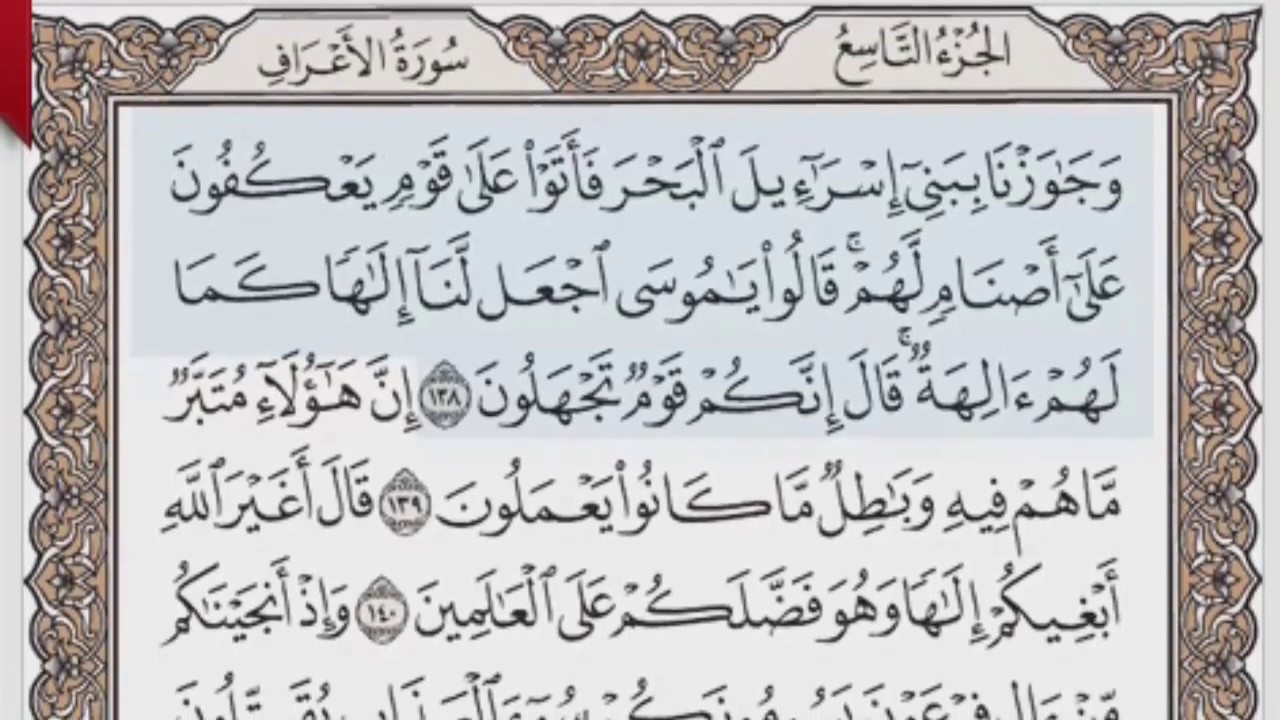 الجُزْءُ التَّاسِعُ
سُورَةُ الأَعْرَافِ
وَجَٰوَزْنَا بِبَنِىٓ إِسْرَٰٓءِيلَ ٱلْبَحْرَ فَأَتَوْا۟ عَلَىٰ قَوْمٍ يَعْكُفُونَ
عَلَىٰٓ أَصْنَامٍ لَّهُمْ ۚ قَالُوا۟ يَٰمُوسَى ٱجْعَل لَّنَآ إِلَٰهًا كَمَا
لَهُمْ ءَالِهَةٌ ۚ قَالَ إِنَّكُمْ قَوْمٌ تَجْهَلُونَ ١٣٨ إِنَّ هَٰٓؤُلَآءِ مُتَبَّرٌ
مَّا هُمْ فِيهِ وَبَٰطِلٌ مَّا كَانُوا۟ يَعْمَلُونَ ١٣٩ قَالَ أَغَيْرَ ٱللَّهِ
أَبْغِيكُمْ إِلَٰهًا وَهُوَ فَضَّلَكُمْ عَلَى ٱلْعَٰلَمِينَ ١٤٠ وَإِذْ أَنجَيْنَٰكُم